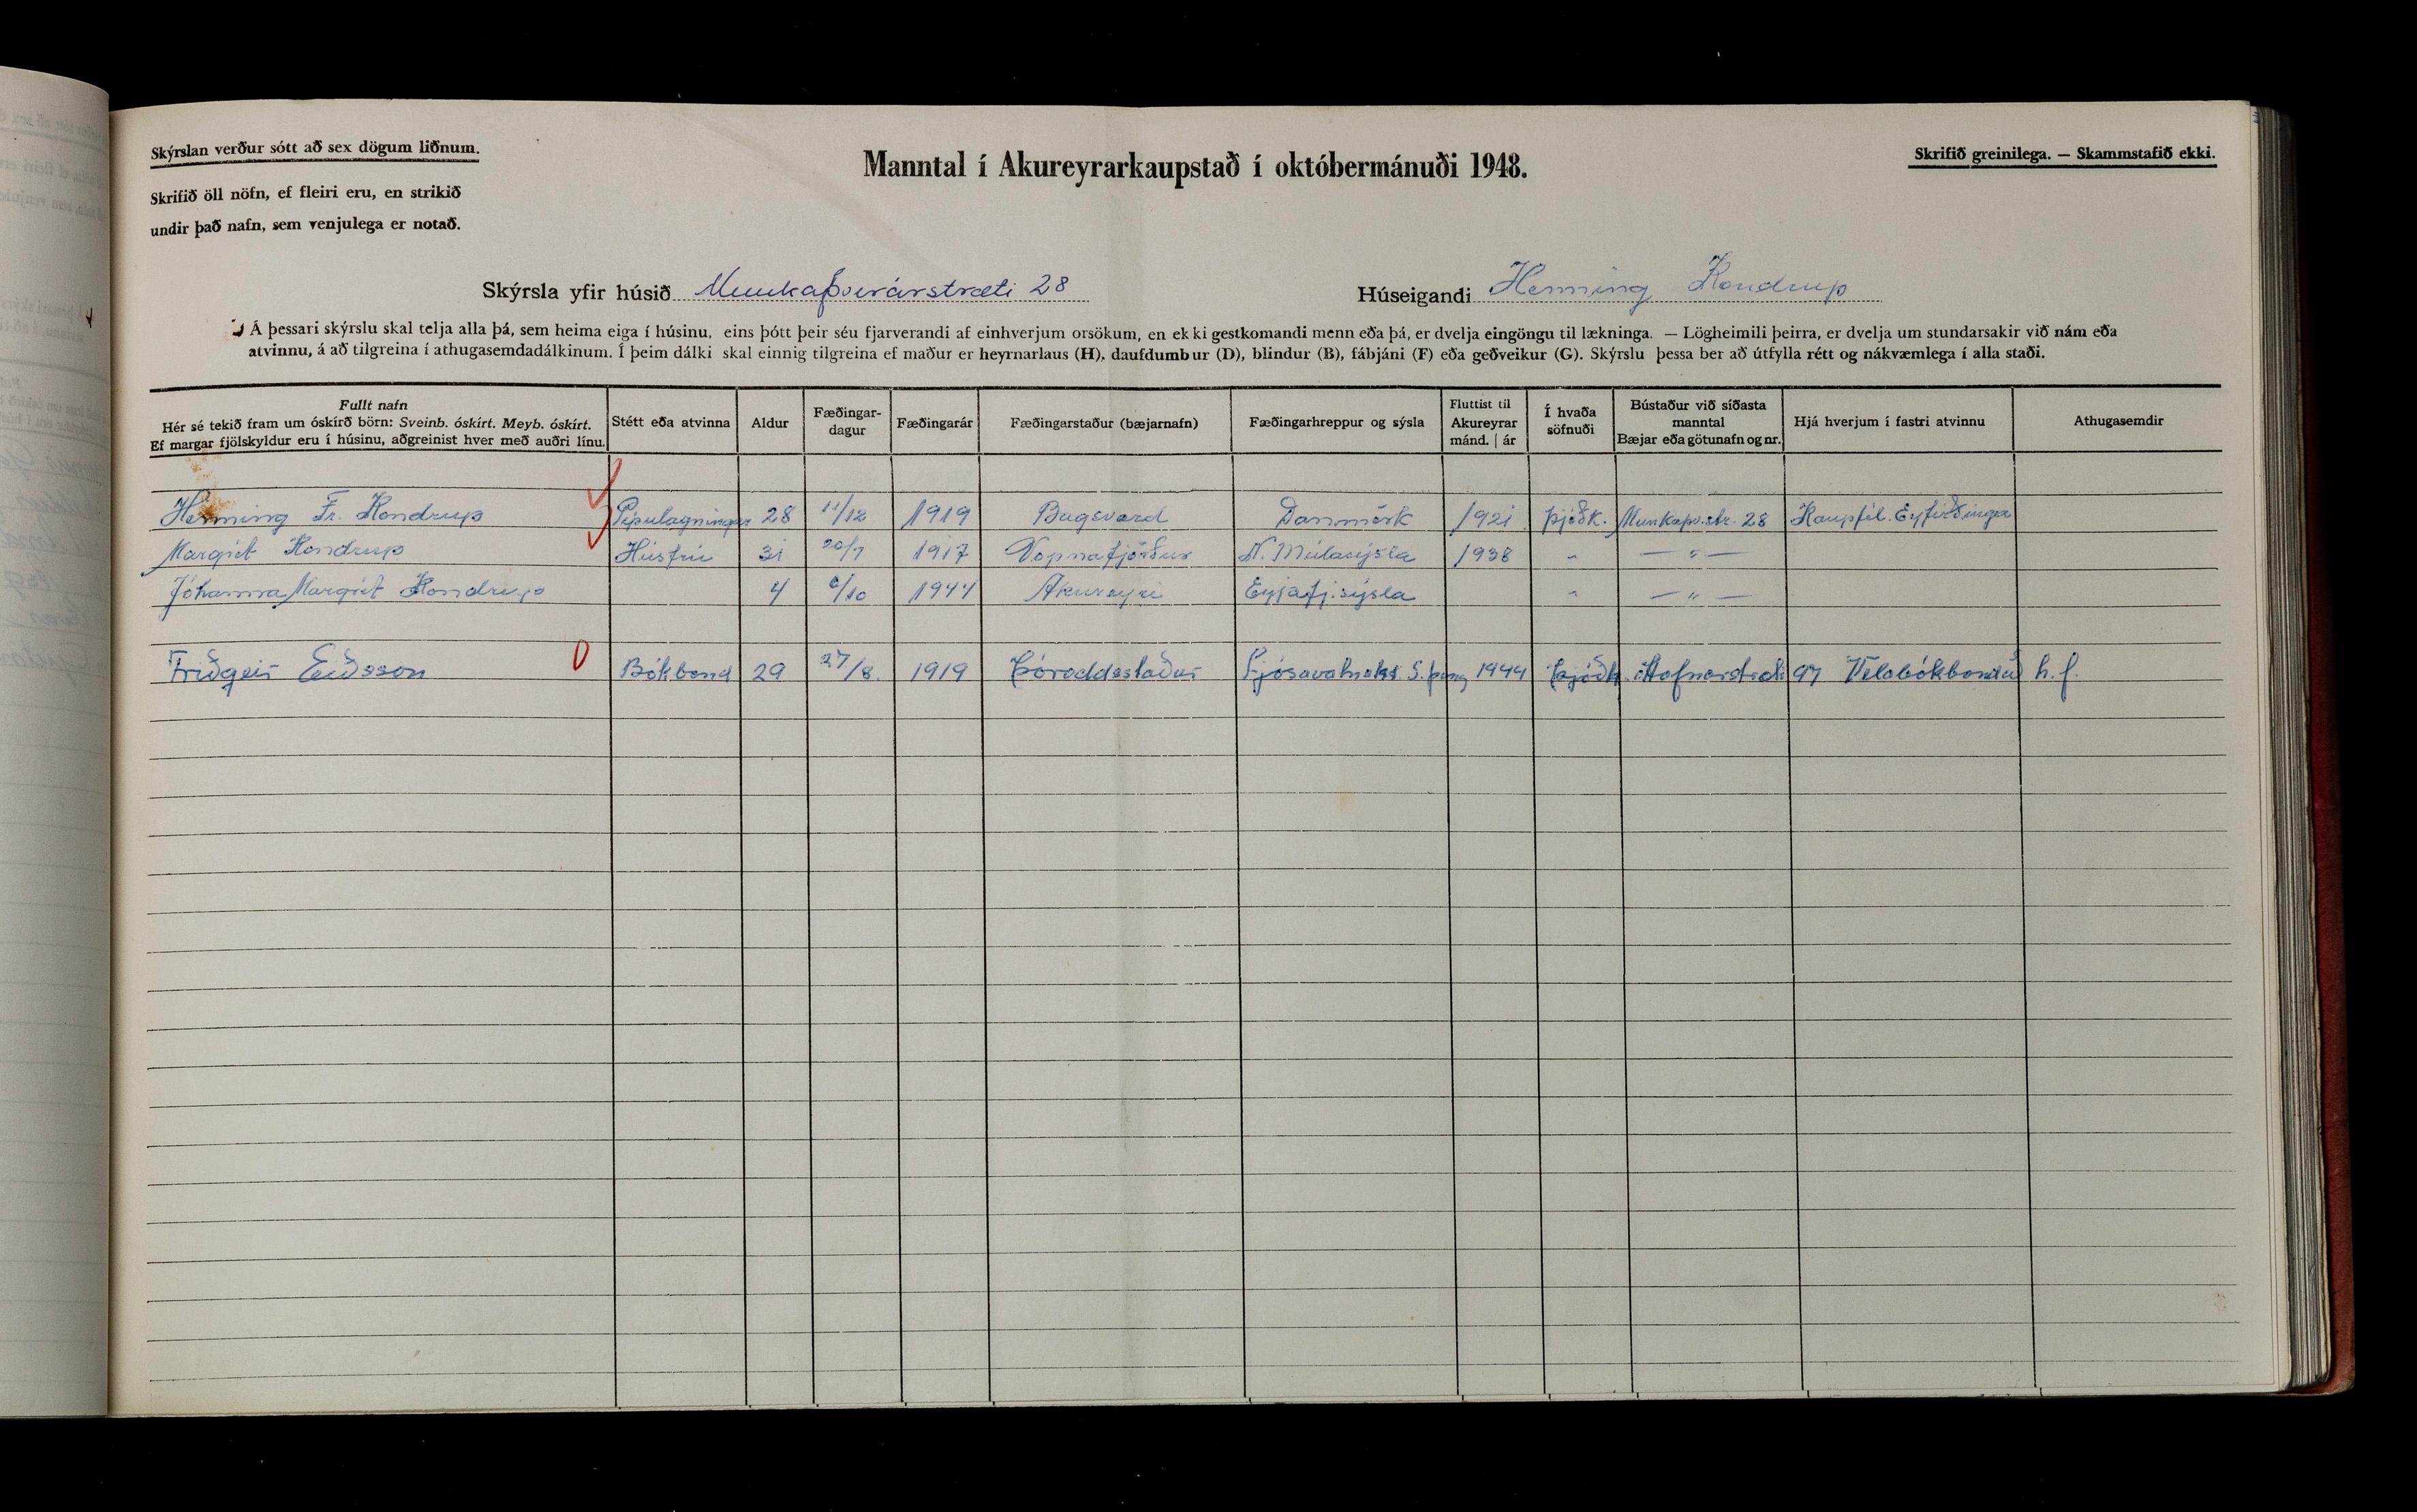 Skýrslan verður sótt að sex dögum liðnum.
Skrifið öll nöfn, ef fleiri eru, en strikið
undir það nafn, sem venjulega er notað.
Manntal í Akureyrarkaupstað í októbermánuði 1948.
Skrifið greinilega. — Skammstafið ekki.
Skýrsla yfir húsið Munkaþverárstræti 28
Húseigandi Henning Kondrup
Á þessari skýrslu skal telja alla þá, sem heima eiga í húsinu, eins þótt þeir séu fjarverandi af einhverjum orsökum, en ekki gestkomandi menn eða þá, er dvelja eingöngu til lækninga. — Lögheimili þeirra, er dvelja um stundarsakir við nám eða
atvinnu, á að tilgreina í athugasemdadálkinum. Í þeim dálki skal einnig tilgreina ef maður er heyrnarlaus (H), daufdumbur (D), blindur (B), fábjáni (F) eða geðveikur (G). Skýrslu þessa ber að útfylla rétt og nákvæmlega í alla staði.
Fullt nafn
Hér sé tekið fram um óskírð börn: Sveinb. óskírt. Meyb. óskírt.
Ef margar fjölskyldur eru í húsinu, aðgreinist hver með auðri línu.
Stétt eða atvinna
Aldur
Fæðingar-
dagur
Fæðingarár
Fæðingarstaður (bæjarnafn)
Fæðingarhreppur og sýsla
Fluttist til
Akureyrar
mánd. | ár
Í hvaða
söfnuði
Bústaður við síðasta
manntal
Bæjar eða götunafn og nr.
Hjá hverjum í fastri atvinnu
Athugasemdir
Henning Fr. Kondrup Pípulagningar 28 11/12 1919 Bagsværd Danmörk /1921 Þjóðk. Munkaþv.str. 28 Kaupfél. Eyfirðinga
Margrét Kondrup Húsfrú 31 20/7 1917 Vopnafjörður N. Múlasýsla 1938 " — " —
Jóhanna Margrét Kondrup 4 6/10 1944 Akureyri Eyjafj.sýsla " — " —
Friðgeir Eiðsson Bókband 29 27/8. 1919 Þóroddsstaður S. þing 1944 Þjóðk. Hafnarstræti 97 Vélabókbandið h.f.